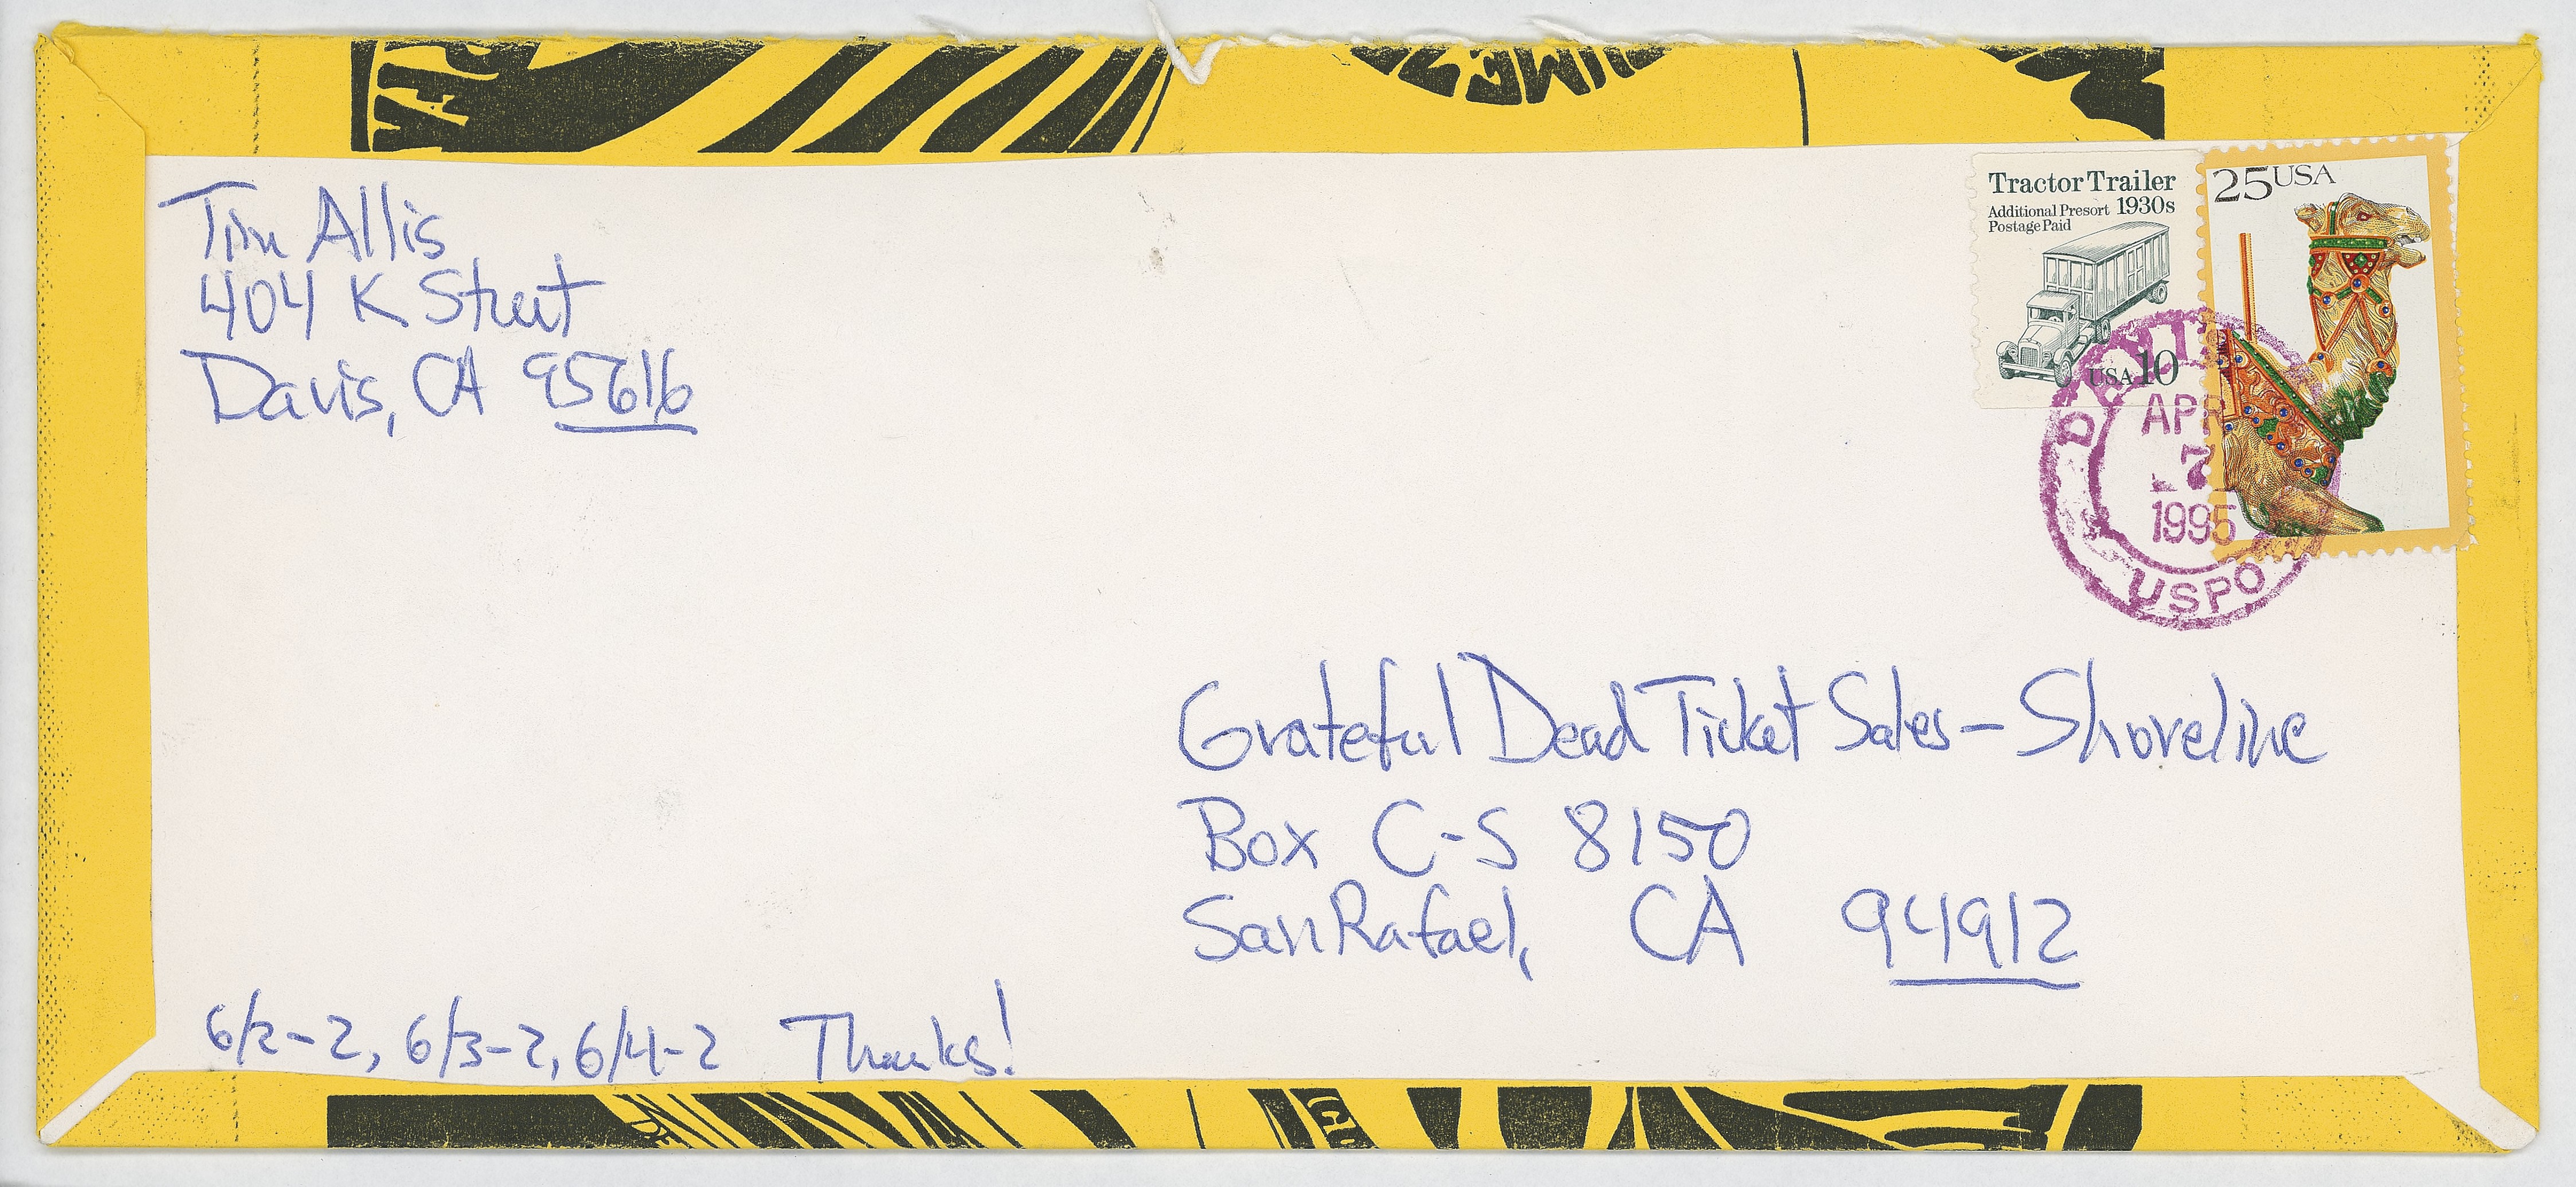 Tim Allis
404 K Street
Davis, CA 95616
Tractor Trailer
Additional Presort 1930s
Postage Paid
USA 10
25 USA
APR
7
1995
USPO
Grateful Dead Ticket Sales - Shoreline
Box C-S 8150
San Rafael, CA 94912
6/2-2, 6/3-2, 6/4-2 Thanks!